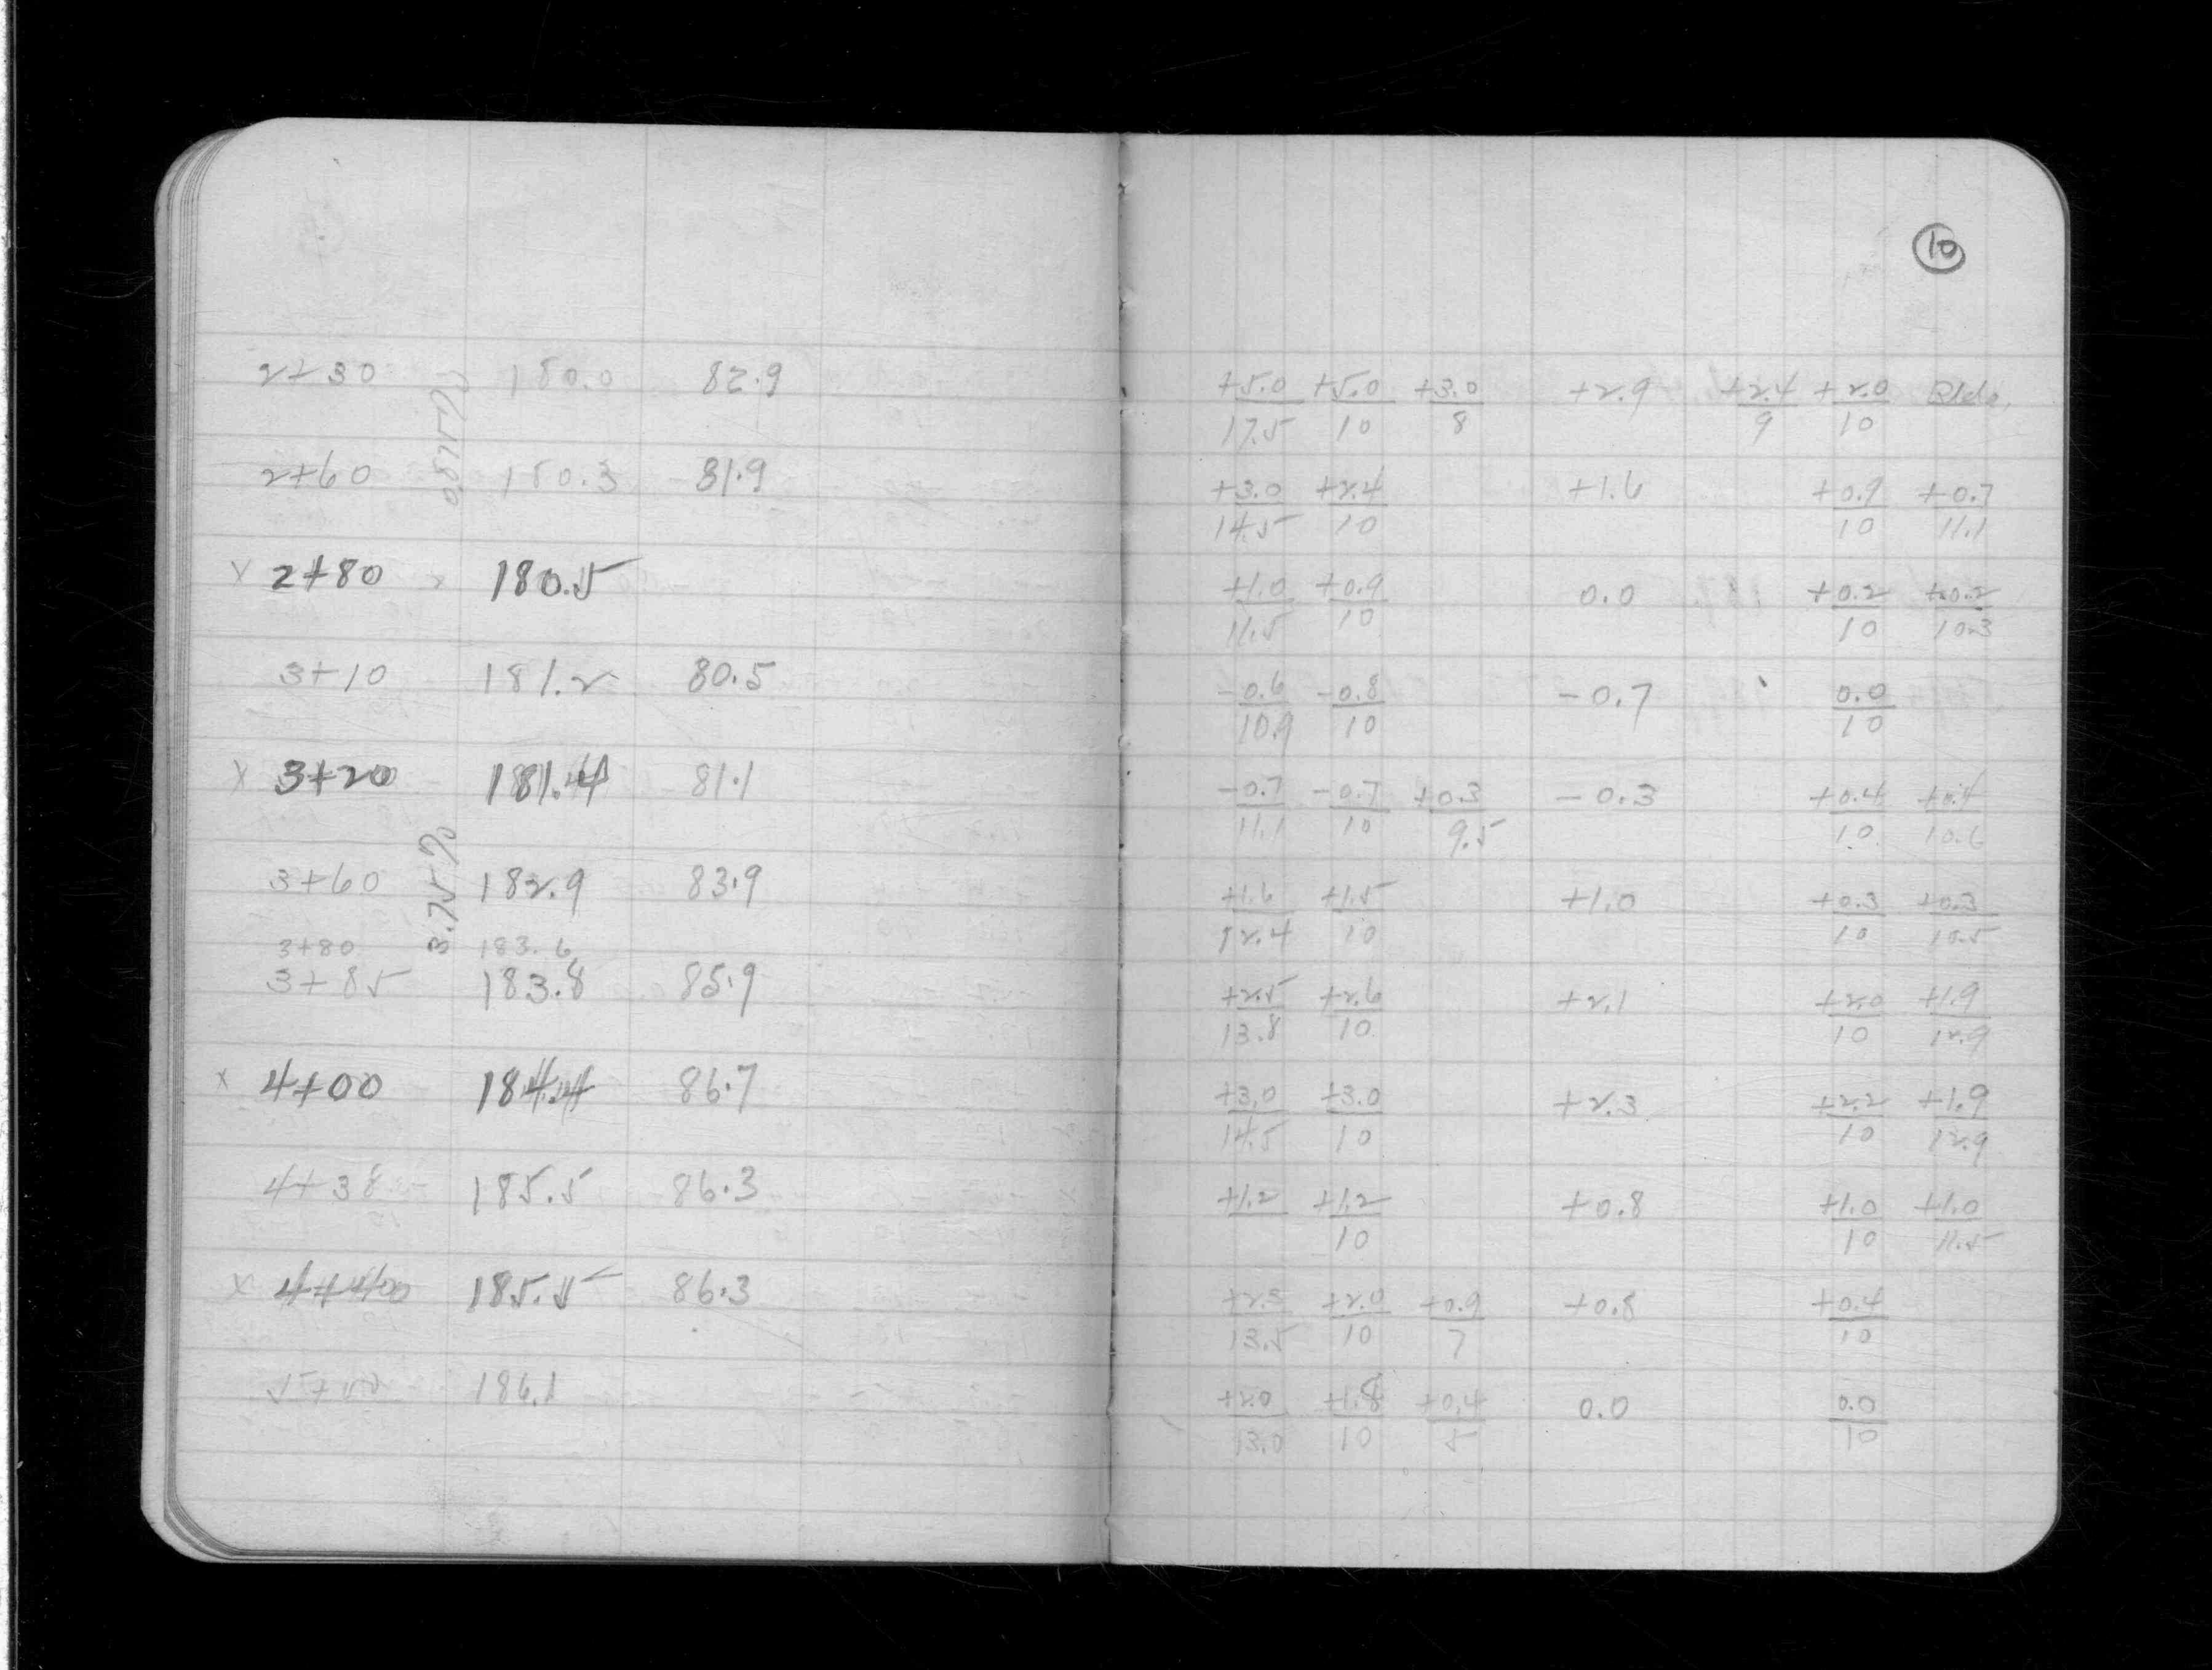 10
2+30 180.0 82.9 +5.0 +5.0 +3.0 +2.9 +2.4 +2.0 Bldg.
17.5 10 8 9 10
0.875%
2+60 180.3 81.9 +3.0 +2.4 +1.6 +0.9 +0.7
14.5 10 10 11.1
x 2+80 180.5 +1.0 +0.9 0.0 +0.2 +0.2
11.5 10 10 10.3
3+10 181.2 80.5 -0.6 -0.8 -0.7 0.0
10.9 10 10
x 3+20 181.4 81.1 -0.7 -0.7 +0.3 -0.3 +0.4 +0.4
11.1 10 9.5 10 10.6
3.75%
3+60 182.9 83.9 +1.6 +1.5 +1.0 +0.3 +0.3
12.4 10 10 10.5
3+80 183.6
3+85 183.8 85.9 +2.5 +2.6 +2.1 +2.0 +1.9
13.8 10 10 12.9
x 4+00 184.4 86.7 +3.0 +3.0 +2.3 +2.2 +1.9
14.5 10 10 12.9
4+38 185.5 86.3 +1.2 +1.2 +0.8 +1.0 +1.0
10 10 11.5
x 4+40 185.5 86.3 +2.3 +2.0 +0.9 +0.8 +0.4
13.5 10 7 10
186.1 +2.0 +1.8 +0.4 0.0 0.0
13.0 10 5 10